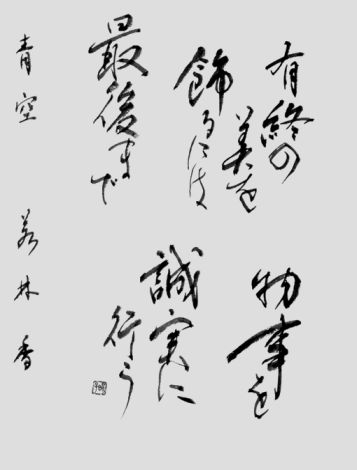 有終の
美を
飾るには
最後まで
物事を
誠実に
行う
青空 若林香